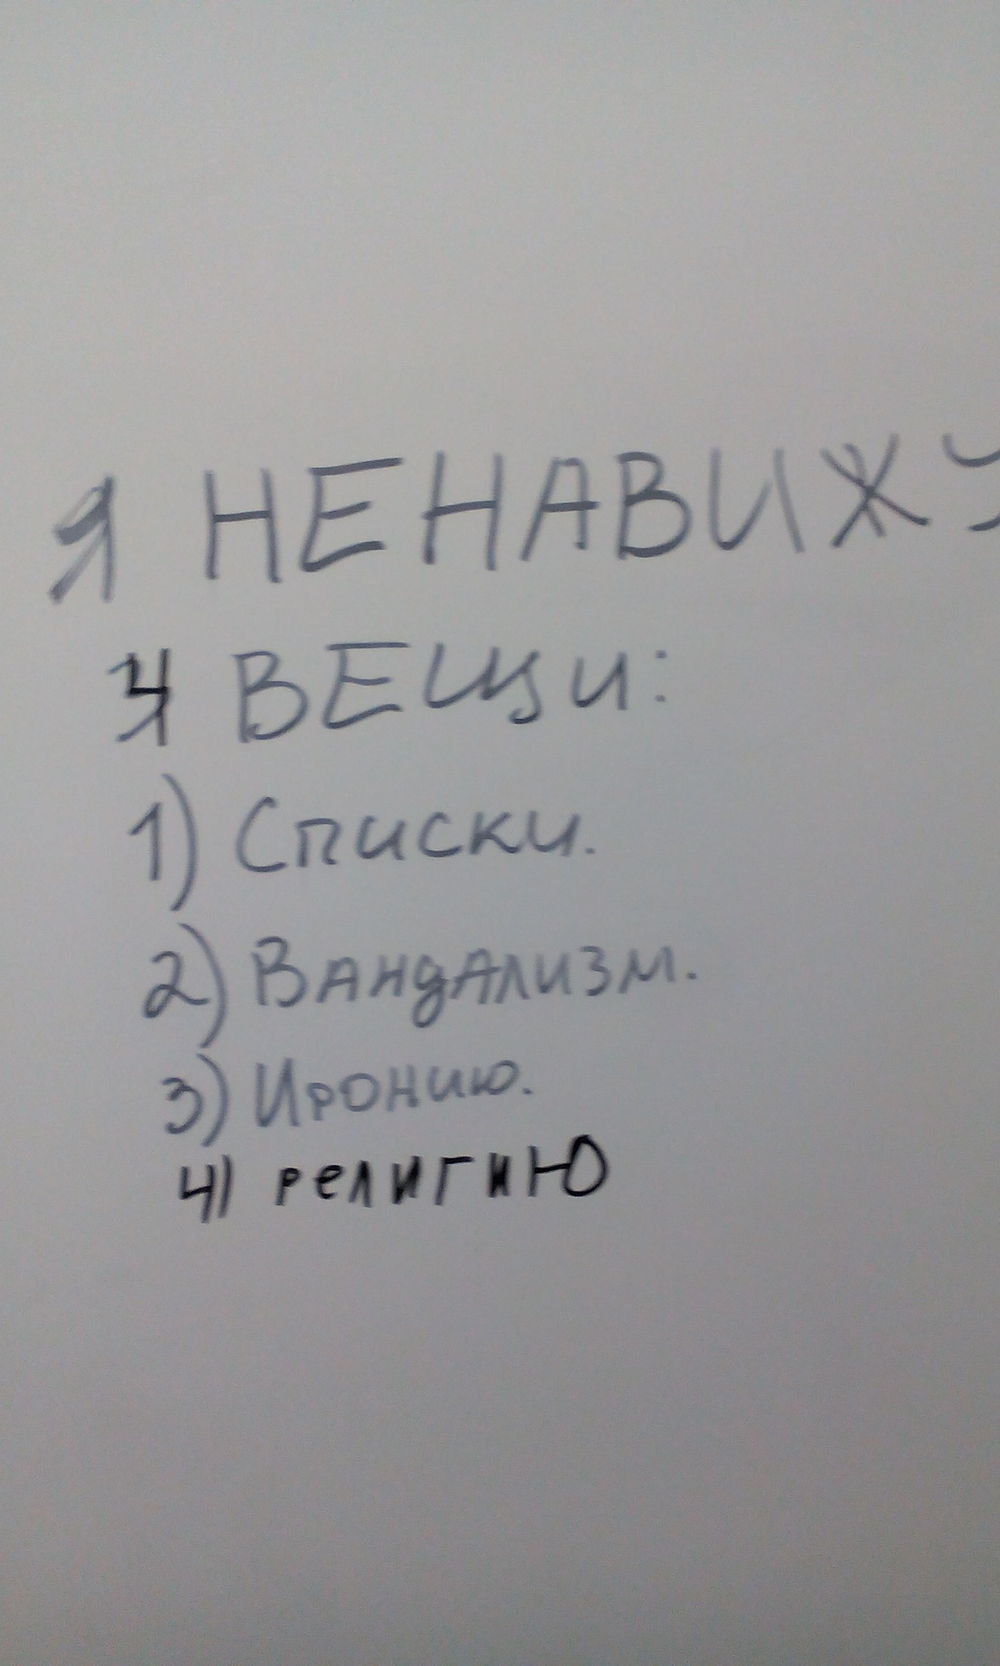 Я НЕНАВИЖУ
4 ВЕЩИ:
1) Списки.
2) Вандализм.
3) Иронию.
4) религию